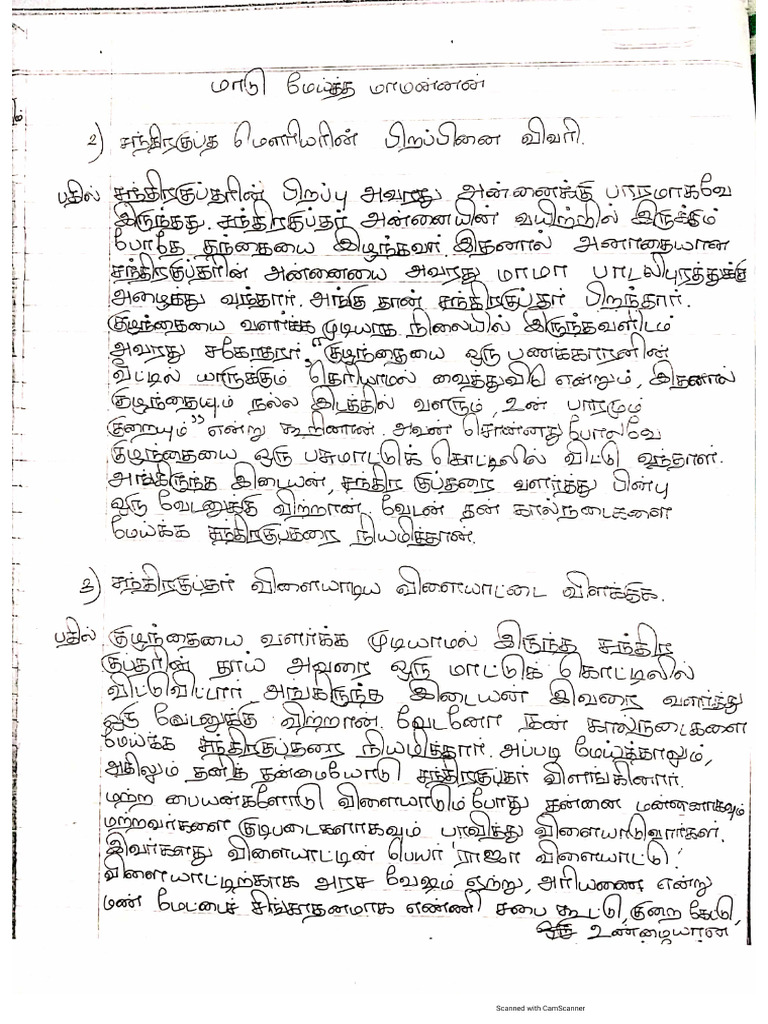 மாடு மேய்த்த மாமன்னன்
2) சந்திரகுப்த மௌரியரின் பிறப்பினை விவரி.
பதில் சந்திரகுப்தரின் பிறப்பு அவரது அன்னைக்கு பாரமாகவே
இருந்தது. சந்திரகுப்தர் அன்னையின் வயிற்றில் இருக்கும்
போதே தந்தையை இழந்தவர். இதனால் அனாதையான
சந்திரகுப்தரின் அன்னையை அவரது மாமா பாடலிபுரத்துக்கு
அழைகது வந்தார். அங்கு தான் சந்திரகுப்தர் பிறந்தார்.
குழந்தையை வளர்க்க முடியாத நிலையில் இருந்தவளிடம்
அவரது சகோதரர் "குழந்தையை ஒரு பணக்காரனின்
வீட்டில் யாருக்கும் தெரியாமல் வைத்துவிடு என்றும், இதனால்
குழந்தையும் நல்ல இடத்தில் வளரும், உன் பாரமும்
குறையும்" என்று கூறினான். அவன் சொன்னது போலவே
குழந்தையை ஒரு பசுமாட்டுக் கொட்டிலில் விட்டு வந்தாள்.
அங்கிருந்த இடையன், சந்திர குப்தரை வளர்த்து பின்பு
ஒரு வேடனுக்கு விற்றான். வேடன் தன் கால்நடைகளை
மேய்க்க சந்திரகுப்தரை நியமித்தான்.
3) சந்திரகுப்தர் விளையாடிய விளையாட்டை விளக்குக.
பதில் குழந்தையை வளர்க்க முடியாமல் இருந்த சந்திர
குப்தரின் தாய் அவரை ஒரு மாட்டுக் கொட்டிலில்
விட்டுவிட்டார் அங்கிருந்த இடையன் இவரை வளர்த்து
ஒரு வேடனுக்கு விற்றான். வேடனோ தன் கால்நடைகளை
மேய்க்க சந்திரகுப்தரை நியமித்தார். அப்படி மேய்த்தாலும்,
அதிலும் தனித் தன்மையோடு சந்திரகுப்தர் விளங்கினார்.
மற்ற பையன்களோடு விளையாடும் போது தன்னை மன்னனாகவும்
மற்றவர்களை குடிபடைகளாகவும் பாவித்து விளையாடுவார்கள்.
இவர்களது விளையாட்டின் பெயர் 'ராஜா விளையாட்டு'.
விளையாட்டிற்காக அரச வேஷம் ஏற்று, அரியணை என்று
மண் மேட்பைச் சிங்காதனமாக எண்ணி சபை கூட்டி, குறை கேட்டு,
உண்மையான
Scanned with CamScanner